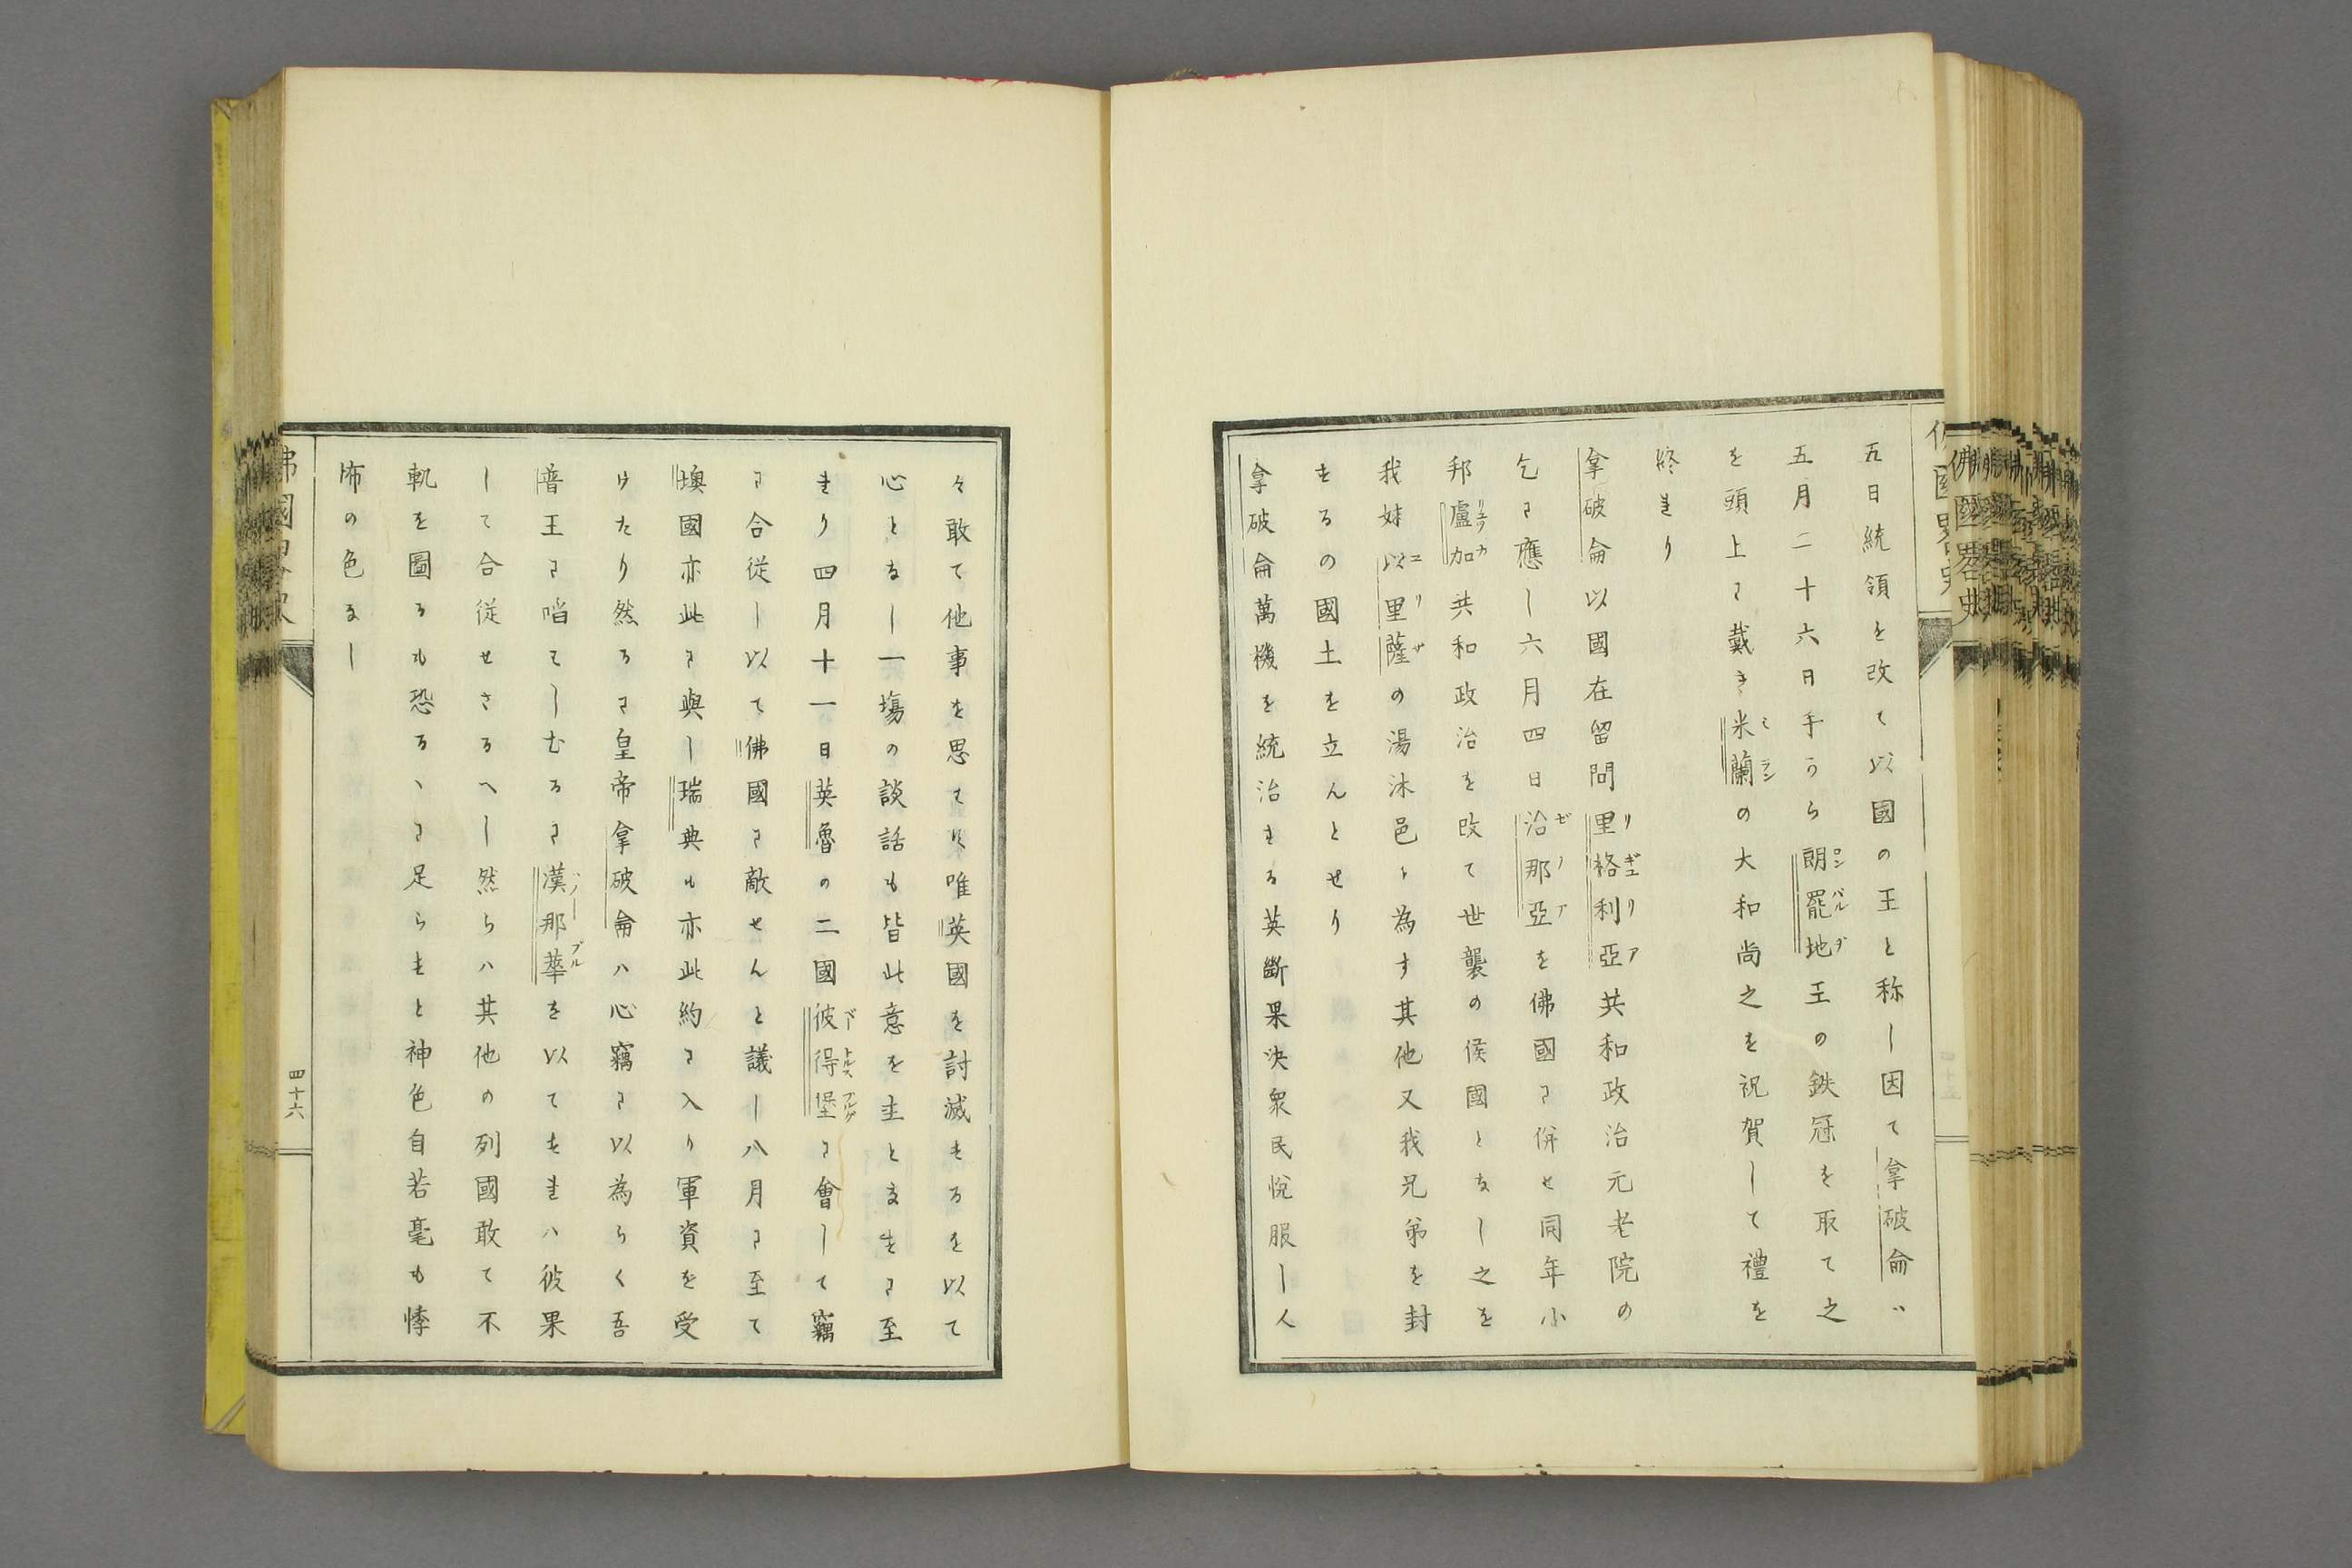 五日統領を改て以國の王と称し因て拿破侖ハ
五月二十六日手つら朗罷地王の鉄冠を取て之
を頭上に戴き米蘭の大和尚之を祝賀して禮を
終れり
拿破侖以國在留問里格利亞共和政治元老院の
乞に應し六月四日治那亞を佛國に併せ同年小
邦盧加共和政治を改て世襲の侯國となし之を
我妹以里薩の湯沐邑と為す其他又我兄弟を封
するの國土を立んとせり
拿破侖萬機を統治する英斷果决衆民悦服し人
々敢て他事を思ハす唯英國を討滅するを以て
心となし一塲の談話も皆此意を主となすに至
れり四月十一日英魯の二國彼得堡に會して竊
に合従し以て佛國に敵せんと議し八月に至て
墺國亦此に與し瑞典も亦此約に入り軍資を受
けたり然るに皇帝拿破侖ハ心竊に以為らく吾
普王に啗てしむるに漢那華を以てすれハ彼果
して合従せさるへし然らハ其他の列國敢て不
軌を圖るも恐るヽに足らすと神色自若毫も悸
怖の色なし
佛國畧史
四十六